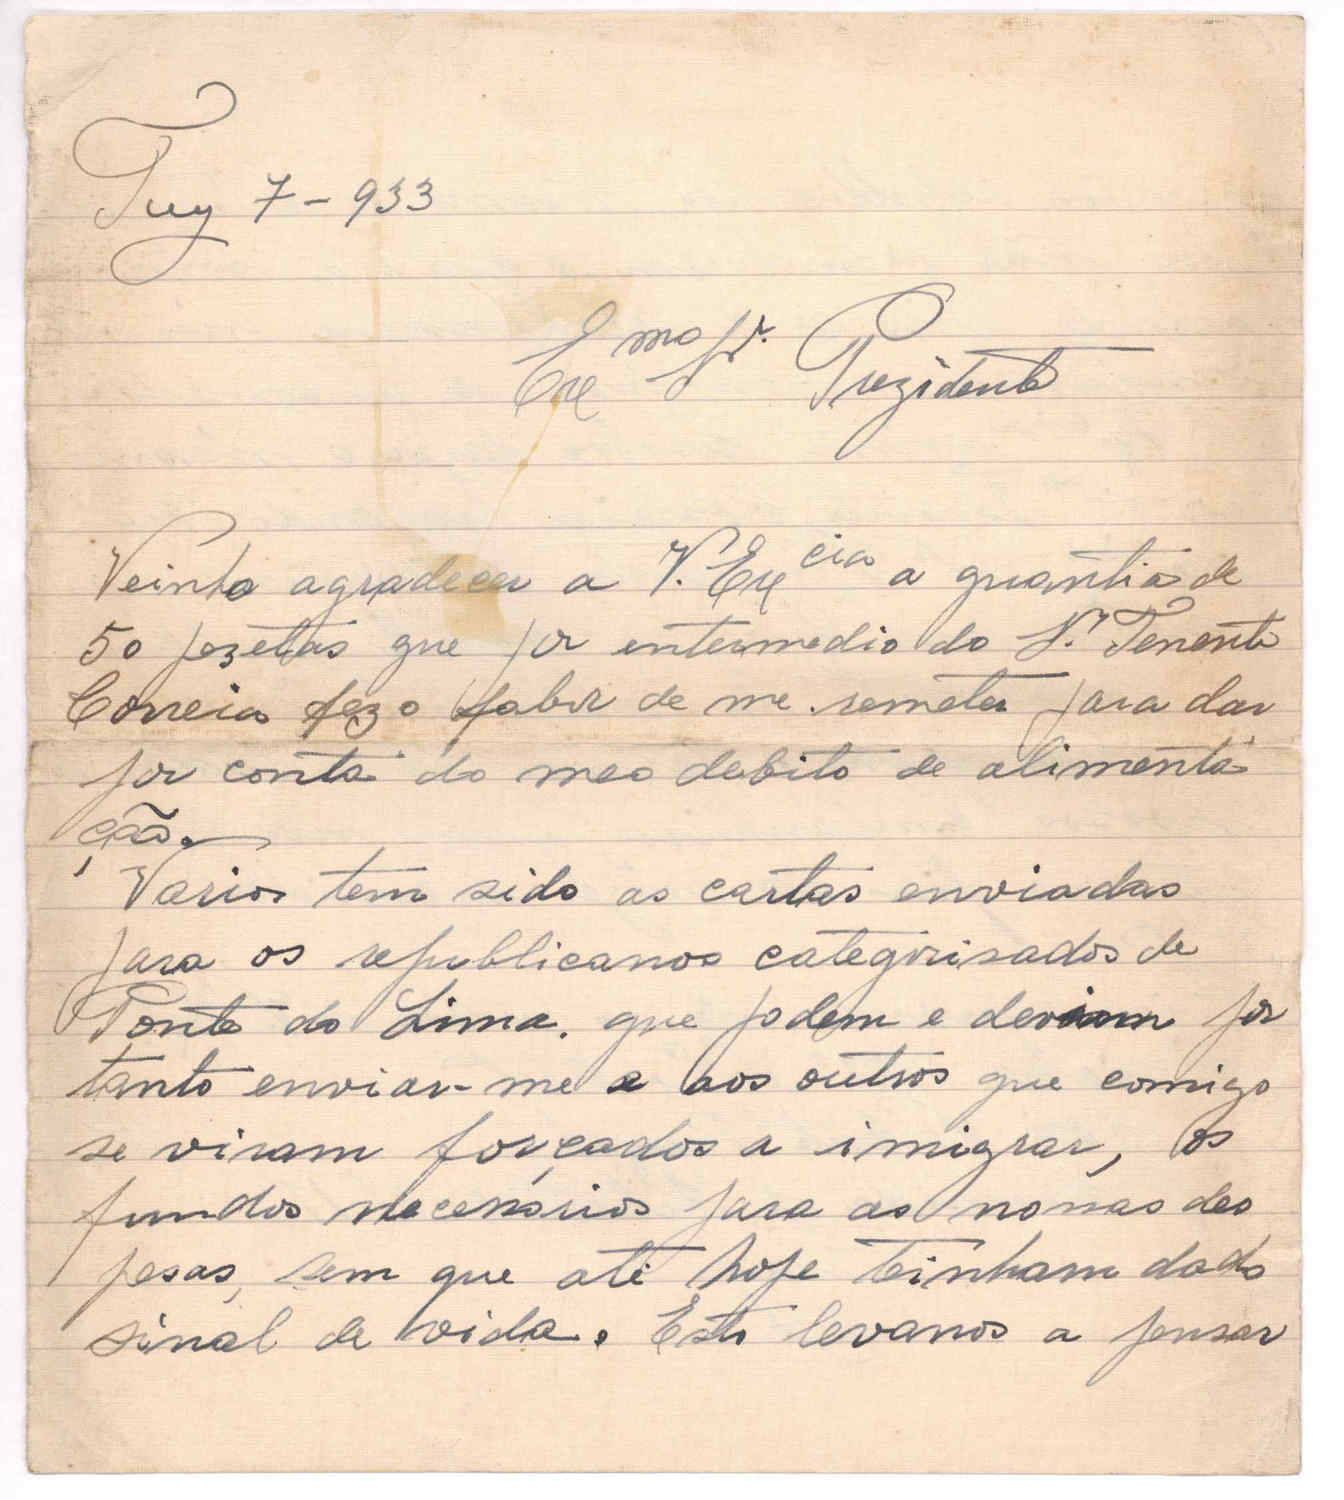 Tuy 7-933
Exmo Sr. Prezidente
Veinho agradecer a V. Excia a quantia de
50 pezetas que por entermedio do Sr. Tenente
Correia fez o fabor de me remeter para dar
por conta do meo debito de alimenta
ção.
Varias tem sido as cartas enviadas
para os republicanos categorisados de
Ponte do Lima. que podem e deviam por
tanto enviar-me e aos outros que comigo
se viram forçados a imigrar, os
fundos necessários para as nossas des
pesas, sem que até hoje teinham dado
sinal de vida. Esto levanos a pensar